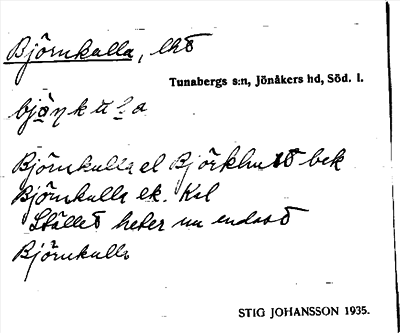 Björnkulla, lht
Tunabergs s:n, Jönåkers hd, Söd. l.
Björnkulla el Björkhult bek
Björnkulla ek. Kal
Stället heter nu endast
Björnkulla
STIG JOHANSSON 1935.